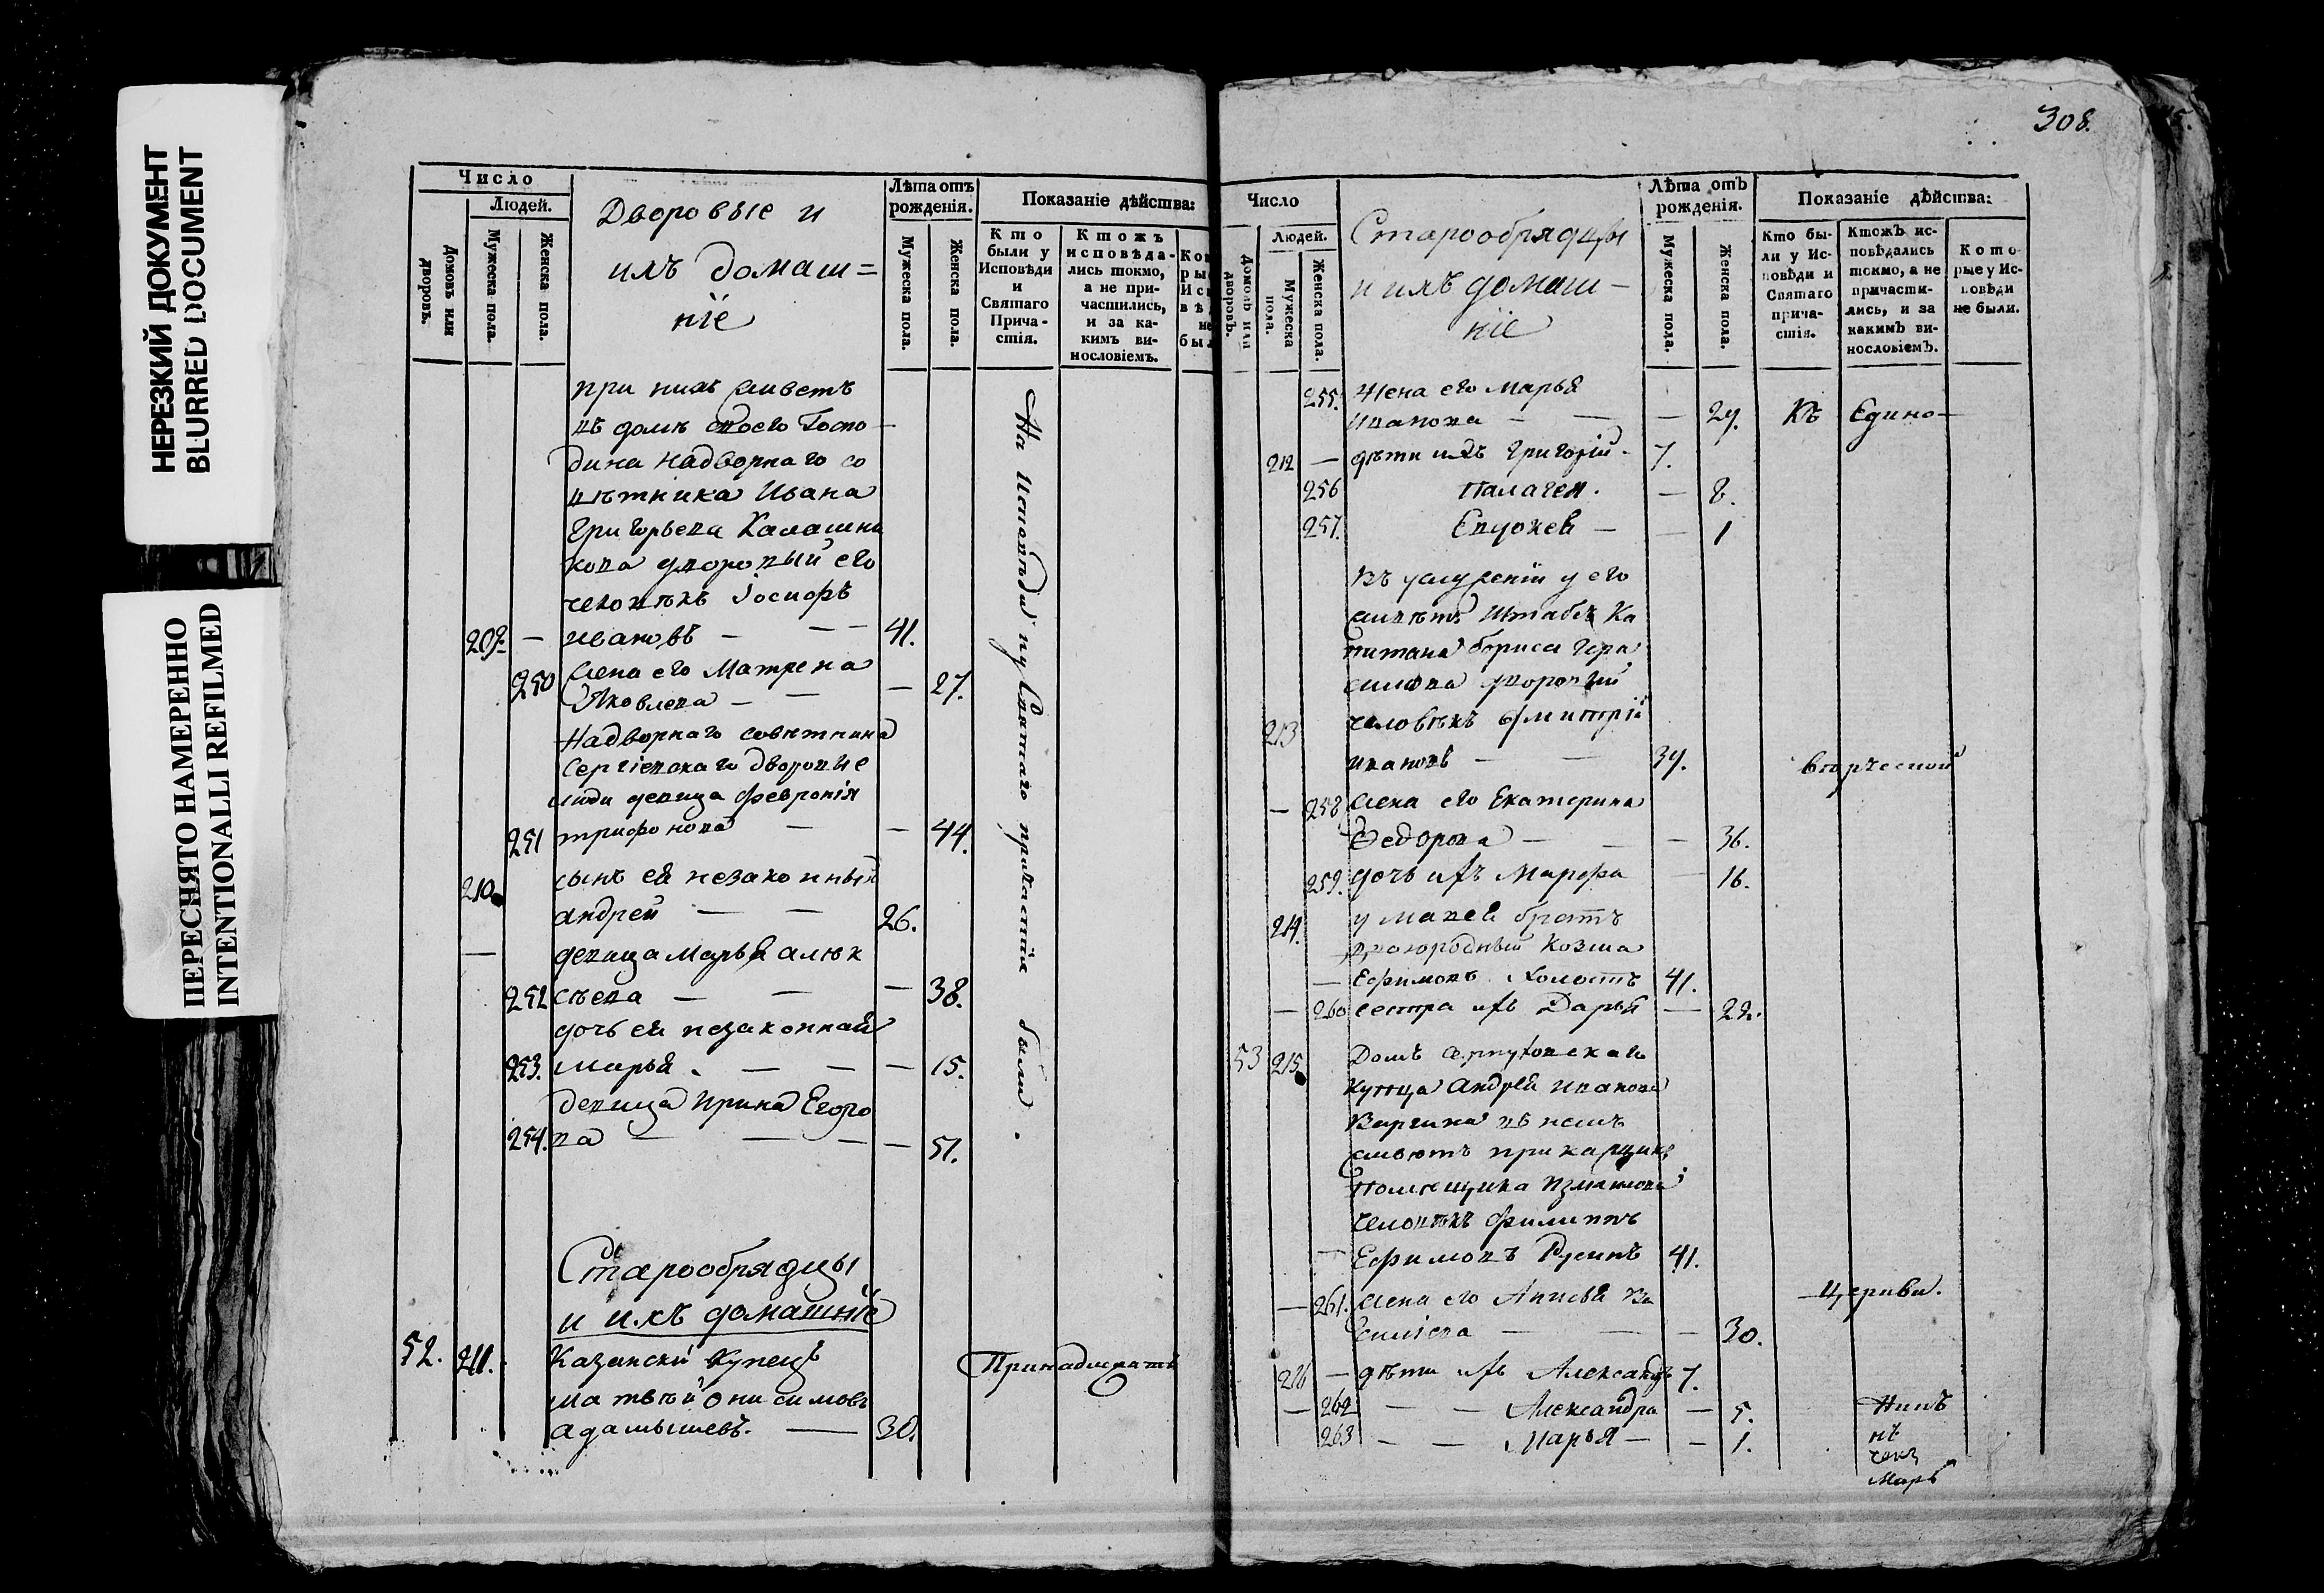 НЕРЕЗКИЙ ДОКУМЕНТ
BLURRED DOCUMENT
ПЕРЕСНЯТО НАМЕРЕННО
INTENTIONALLI REFILMED
Число
Людей.
Домовъ или дворовъ.
Мужеска пола.
Женска пола.
Дворовые и
ихъ домаш=
ніе
Лѣта отъ рожденія.
Мужеска пола.
Женска пола.
Показаніе дѣйства:
Кто были у Исповѣди и Святаго Прича-стія.
Ктожъ исповѣда-лись токмо, а не при-частились, и за ка-кимъ ви-нословіемъ.
при нихъ живетъ
въ домѣ своего Госпо-
дина надворнаго со
вѣтника Ивана
Григорьева Калашни
кова дворовый его
человѣкъ Іосифъ
209 — Ивановъ — — 41.
250 жена его Матрена
Яковлева — — 27.
Надворнаго совѣтника
Сергіевскаго дворовые
люди девица Февронія
251 трифонова — — 44.
210. сынъ ея незаконный
андрей — — 26.
— девица Марья алек
252 сѣева — — — 38.
дочь ея незаконная
253. марья. — — — 15.
девица Ирина Егоро
254. ва — — — — 51.
На Исповѣди и у Святаго причастія были.
Старообрядцы
и ихъ домашніе
52. 211. Казански Купецъ
матвѣй Онисимовъ
адамышевъ. — 30.
Принадлежатъ
308.
Число
Людей.
Домовъ или дворовъ.
Мужеска пола.
Женска пола.
Старообрядцы
и ихъ домаш-
ніе
Лѣта отъ рожденія.
Мужеска пола.
Женска пола.
Показаніе дѣйства:
Кто бы-ли у Ис-повѣди и Святаго прича-стія.
Ктожъ ис-повѣдались токмо, а не причасти-лись, и за какимъ ви-нословіемъ.
Кото-рые у Ис-повѣди не были.
255. Жена его Марья
Иванова — — — 29. Къ Едино-
212 — дѣти ихъ Григорій. 7.
256 Палагея. — 8.
257. Евдокея — — 1
въ услуженіи у его
живетъ Штабсъ Ка
питана бориса Гера
симова дворовый
213 человѣкъ дмитрій
ивановъ — — 39. вѣрческой
— 258 жена его Екатерина
Федорова — — — 36.
259. дочь ихъ Марфа — 16.
214. у матвея братъ
двоюродный Козма
— Ефимовъ холостъ 41.
— 260 сестра ихъ Дарья — 22.
53 215 Домъ серпуховскаго
купца Андрея иванова
Варгина въ немъ
живютъ прикащикъ
помещика измаилова
человѣкъ филиппъ
— Ефимовъ 41.
— 261. жена его Анисья Ва
силіева — — — 30. Церкви.
216 — дѣти ихъ Александръ 7.
— 262 — — Александра — 5.
263 — — Марья — — 1.